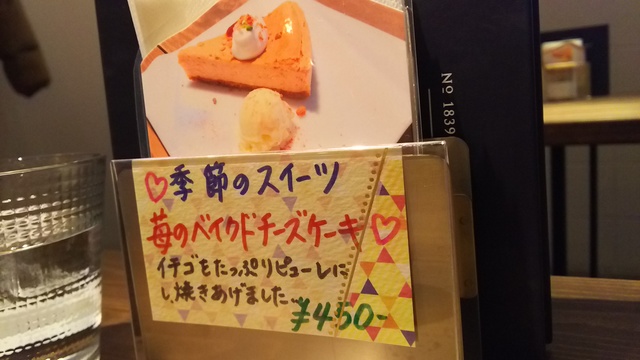 No 1839
♡季節のスイーツ
苺のベイクドチーズケーキ♡
イチゴをたっぷりピューレに
し、焼きあげました〜
¥450-